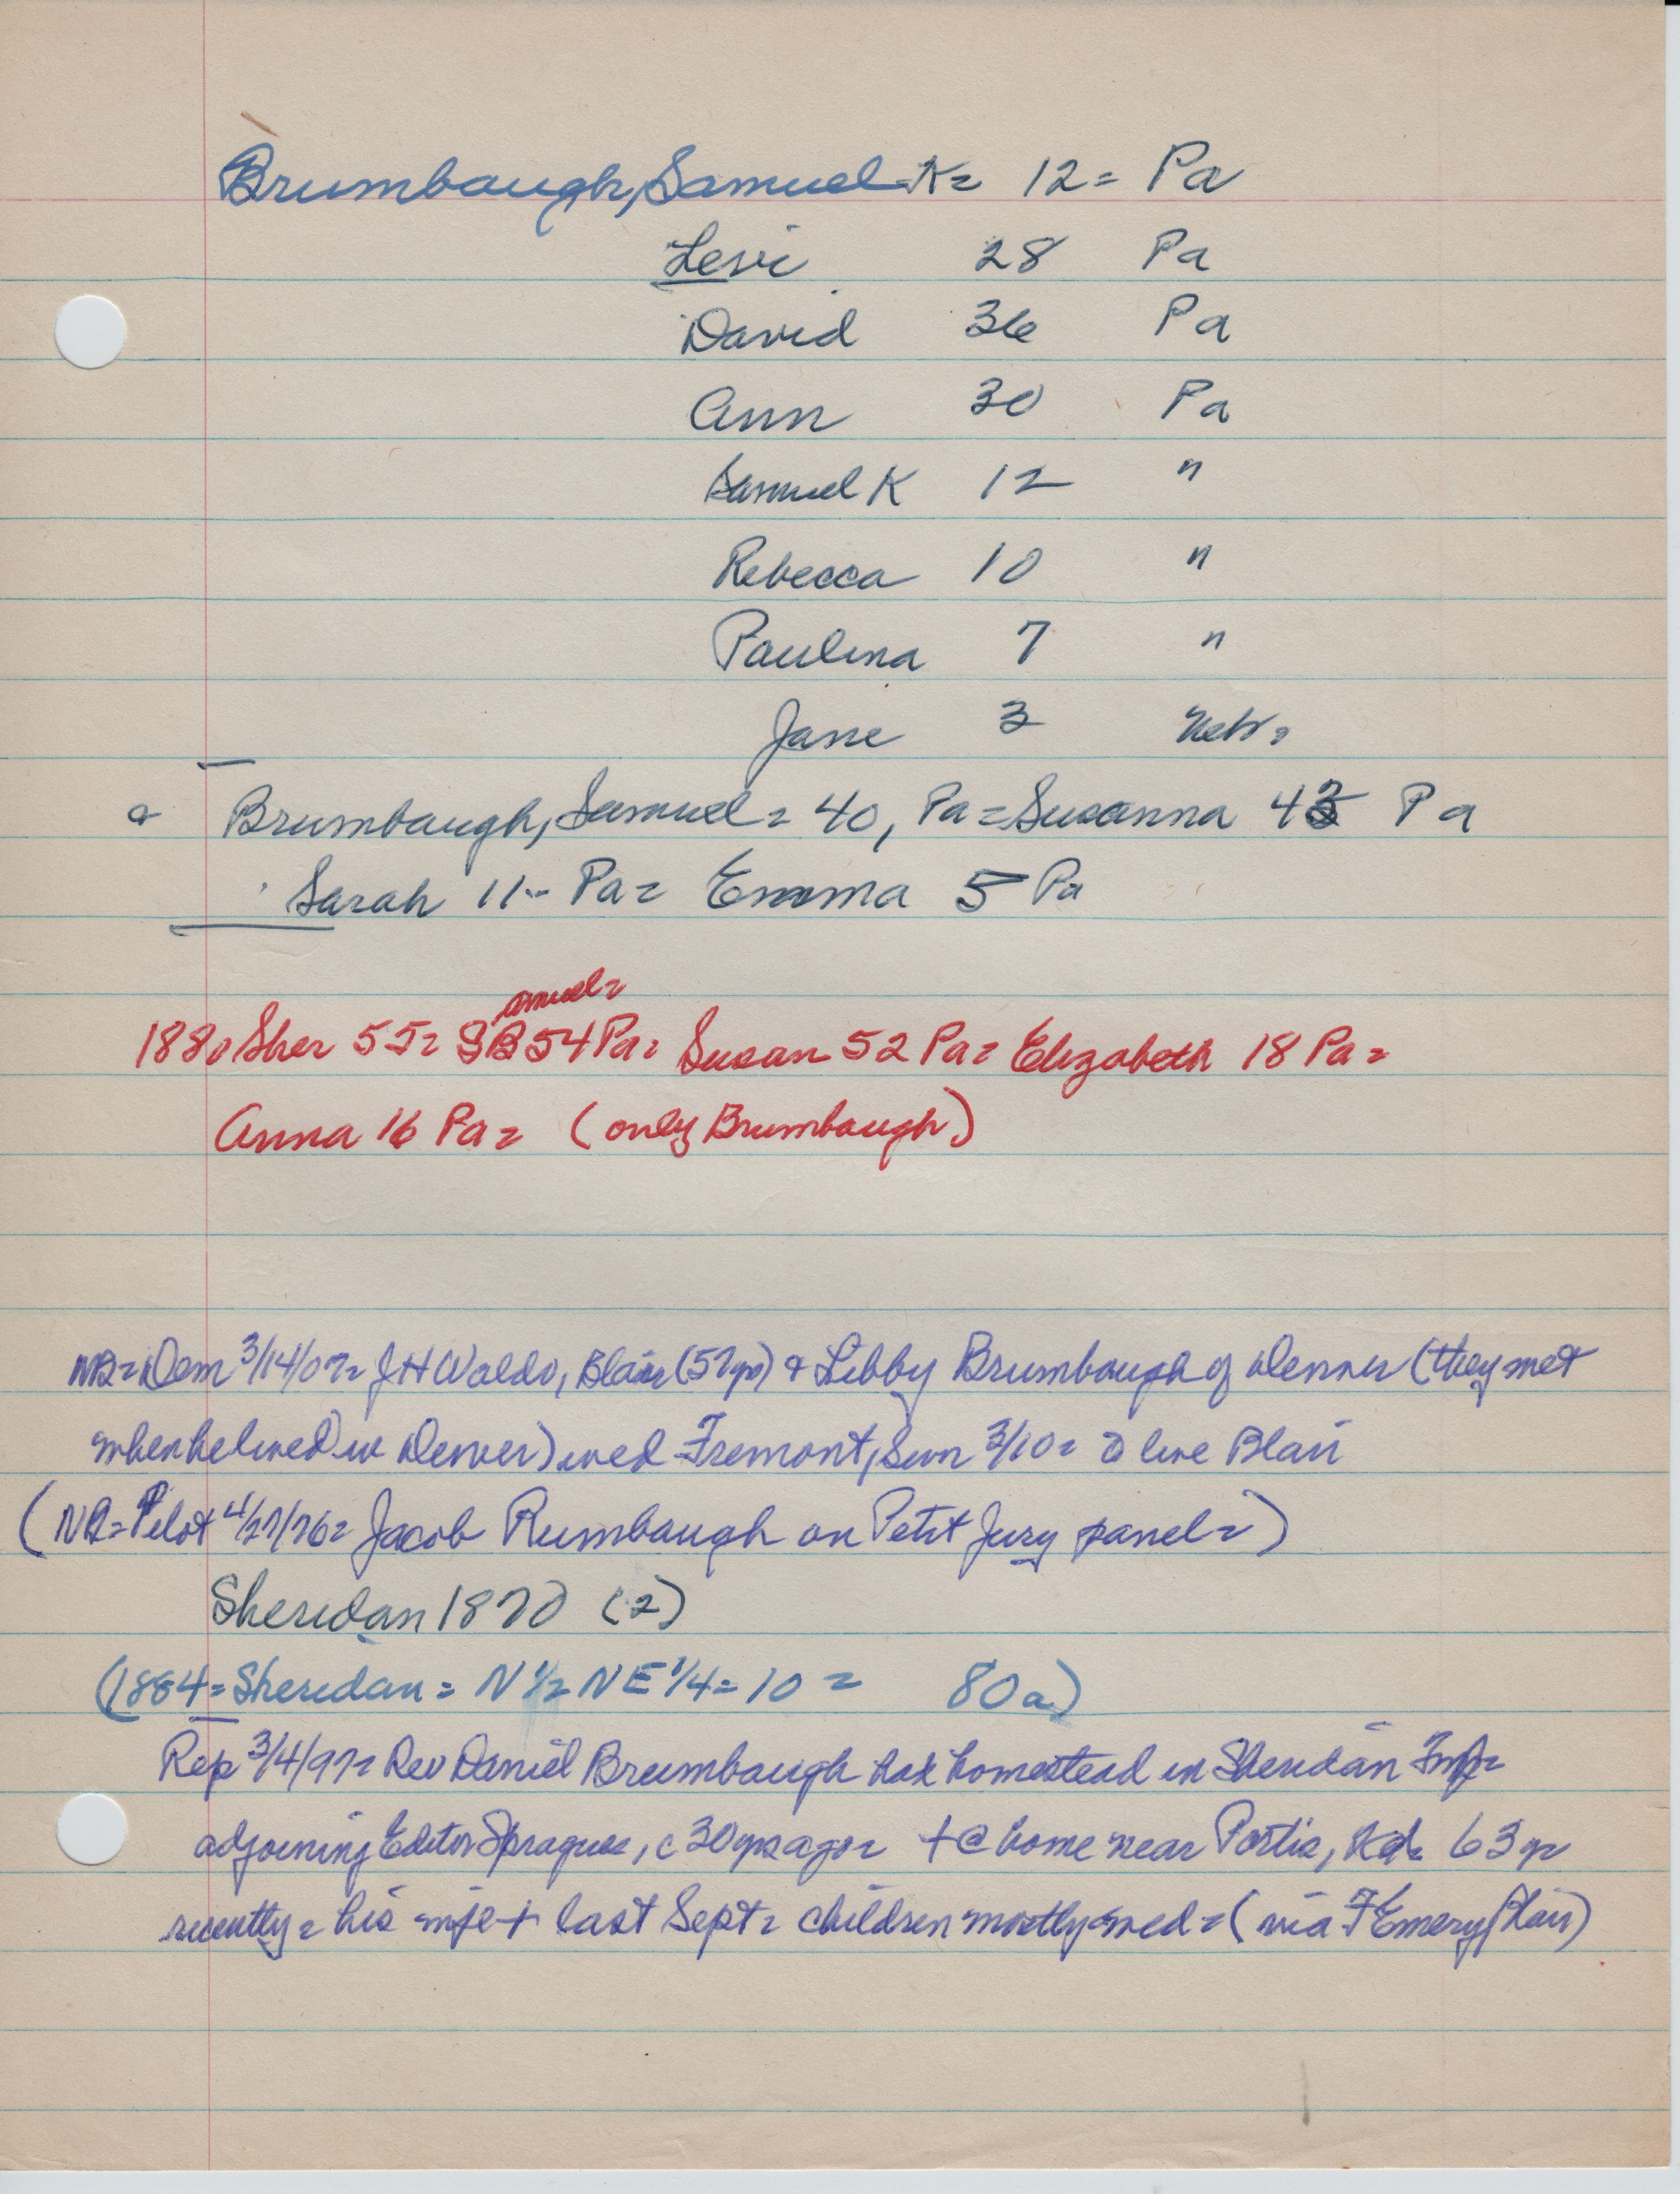 Brumbaugh, Samuel K= 12= Pa
Levi 28 Pa
David 36 Pa
Ann 30 Pa
Samuel K 12 "
Rebecca 10 "
Paulina 7 "
Jane 3 Nebr.
& Brumbaugh, Samuel= 40, Pa= Susanna 43 Pa
Sarah 11- Pa= Emma 5 Pa
amuel=
1880 Sher 55= SB 54 Pa= Susan 52 Pa= Elizabeth 18 Pa=
Anna 16 Pa= (only Brumbaugh)
NB= Dem 3/14/07= J H Waldo, Blair (57 yr) & Libby Brumbaugh of Denver (they met
when he lived in Denver) wed Fremont, Sun 3/10= to live Blair
(NB= Pilot 4/27/76= Jacob Rumbaugh on Petit Jury panel=)
Sheridan 1870 (2)
(1884= Sheridan= N 1/2 NE 1/4= 10= 80a)
Rep 3/4/97= Rev Daniel Brumbaugh had homestead in Sheridan Twp=
adjoining Editor Sprague, c 30 yrs ago= + @ home near Portis, 63 yr
recently= his wife + last Sept= children mostly wed= (via F Emery, Blair)